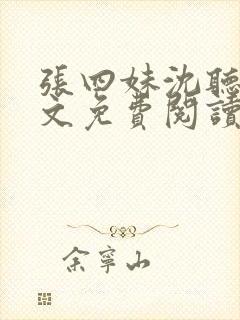 張四妹沈聽
文免費閱讀
余寧山